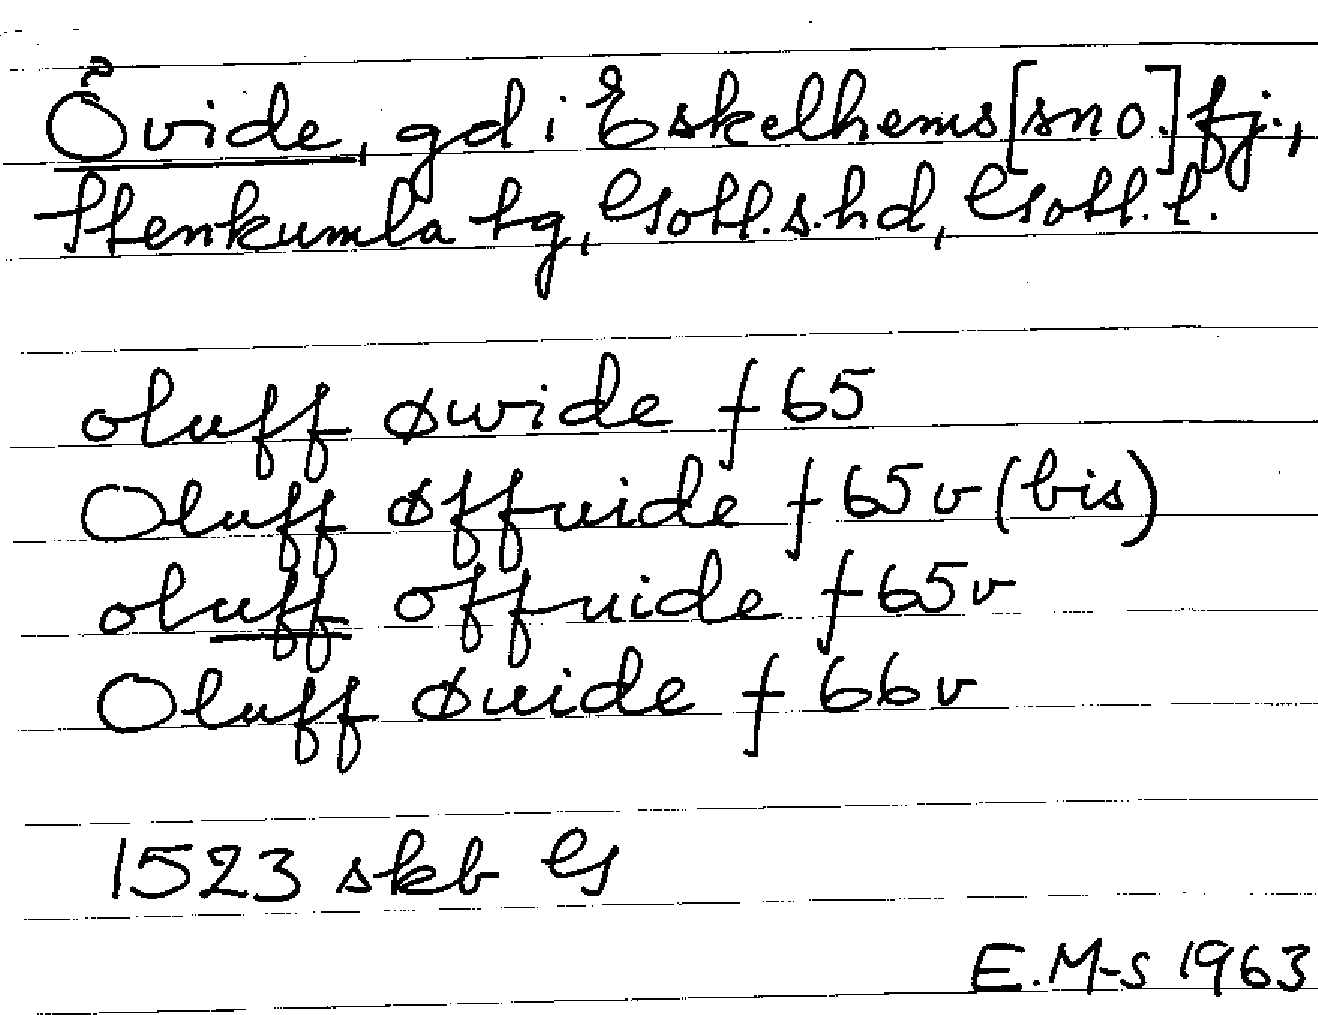 Övide, gd i Eskelhems [sno.] fj.,
Stenkumla tg, Gotl.s.hd, Gotl. l.
oluff øwide f 65
Oluff øffuide f 65 v (bis)
oluff offuide f 65 v
Oluff Øuide f 66 v
1523 skb G
E.M-s 1963